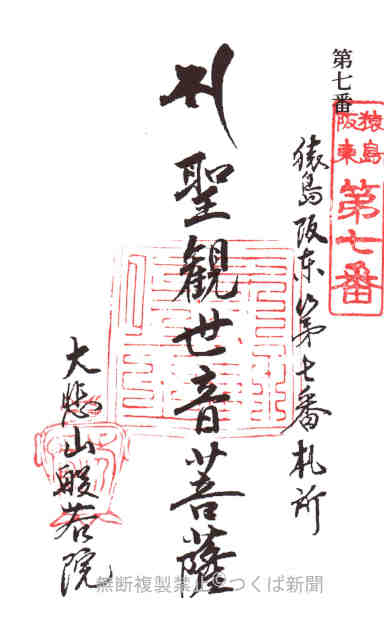 第七番
猿島
阪東
第七番
猿島阪东第七番札所
聖観世音菩薩
大悲山般若院
無断複製禁止©つくば新聞